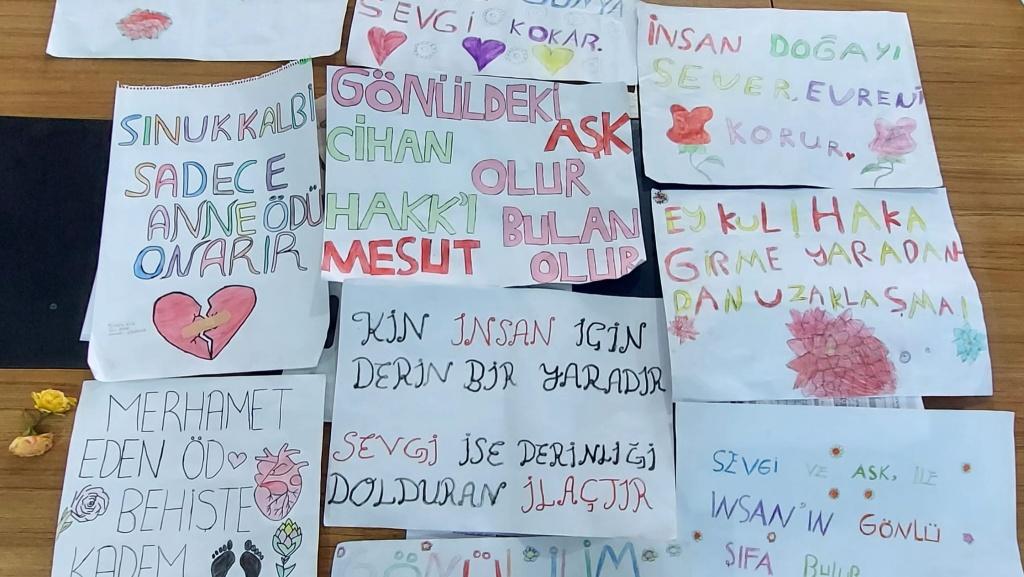 SEVGİ KOKAR.
İNSAN DOĞAYI
SEVER, EVRENİ
KORUR.
SINUK KALBİ
SADECE
ANNE ÖDÜ
ONARIR
GÖNÜLDEKİ
CİHAN AŞK
OLUR
HAKK'I BULAN
MESUT OLUR
EY KUL! HAKA
GİRME YARADAN
DAN UZAKLAŞMA!
KİN İNSAN İÇİN
DERİN BİR YARADIR
SEVGİ İSE DERİNLİĞİ
DOLDURAN İLAÇTIR
MERHAMET
EDEN ÖD
BEHİŞTE
KADEM
SEVGİ VE AŞK, İLE
İNSAN'IN GÖNLÜ
ŞİFA BULUR
GÖNÜL İLİM